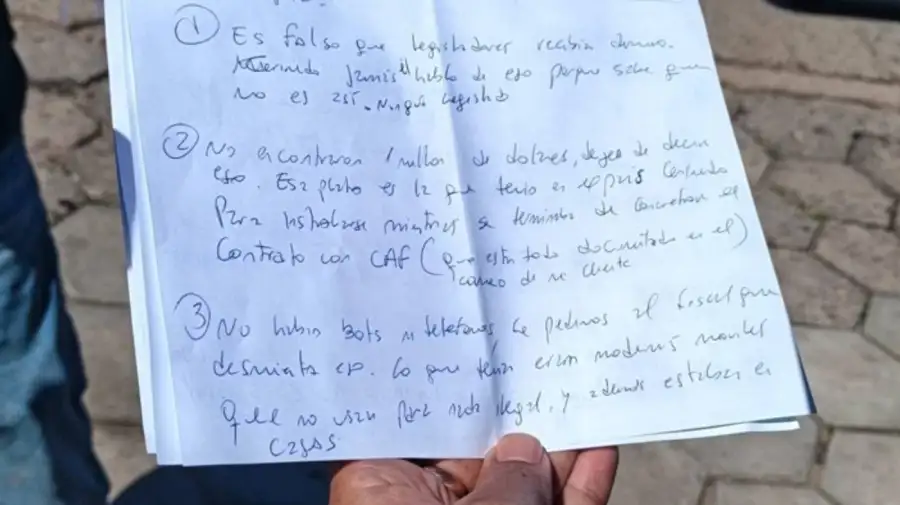 ① Es falso que legisladores recibian dinero.
jamás él habló de eso porque sabe que
no es así. Ningún legislad
② No encontraron 1 millon de dolares, dejen de decir
eso. Esa plata es la que tenia en el pais
Para instalarse mientras se terminaba de concretar el
Contrato con CAF (que esta todo documentado en el)
correo de mi cliente
③ No habia bots ni telefonos, le pedimos al fiscal que
desmienta eso. Lo que tenia eran modems
que no usan para nada ilegal, y ademas estaban en
cajas